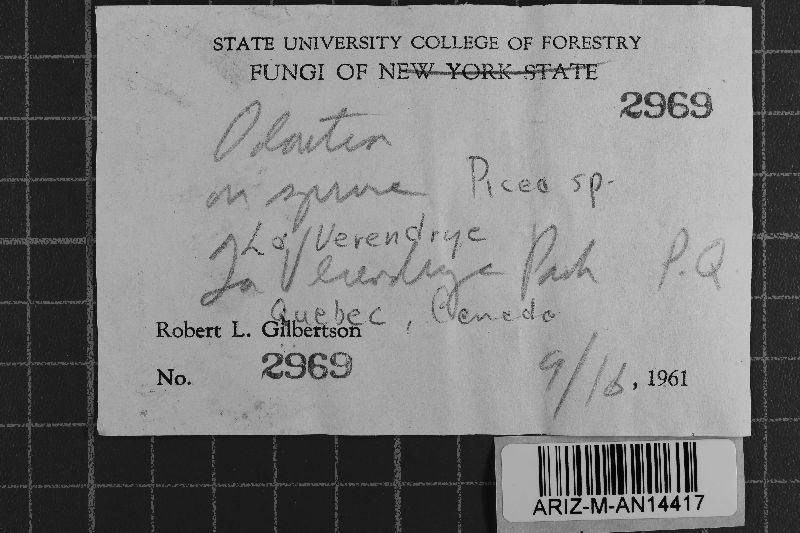 STATE UNIVERSITY COLLEGE OF FORESTRY
FUNGI OF NEW YORK STATE
2969
Odontia
on spruce Picea sp.
La Verendrye
La Verendrye Park P.Q
Quebec, Canada
Robert L. Gilbertson
No. 2969
9/16, 1961
ARIZ-M-AN14417